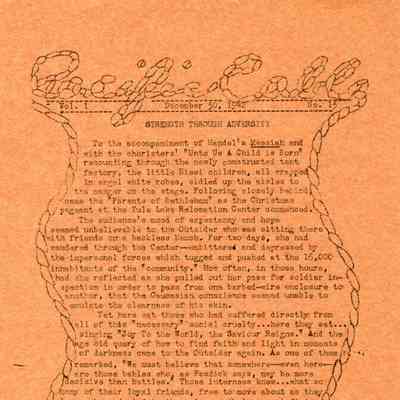 Pacific Cable
Vol. I December 30, 1942 No. 15
STRENGTH THROUGH ADVERSITY
To the accompaniment of Handel's Messiah and
with the choristers' "Unto Us A Child is Born"
resounding through the newly constructed tent
factory, the little Nisei children, all wrapped
in angel white robes, sidled up the aisles to
the manger on the stage. Following closely behind
came the "Parents of Bethlehem" as the Christmas
pageant at the Tule Lake Relocation Center commenced.
The audience's mood of expectancy and hope
seemed unbelievable to the Outsider who was sitting there
with friends on a backless bench. For two days, she had
wandered through the Center—embittered and depressed by
the impersonal forces which tugged and pushed at the 16,000
inhabitants of the "community." How often, in those hours,
had she reflected as she pulled out her pass for soldier in-
spection in order to pass from one barbed-wire enclosure to
another, that the Caucasian conscience seemed unable to
emulate the clearness of his skin.
Yet here sat those who had suffered directly from
all of this "necessary" social cruelty...here they sat...
singing "Joy To the World, the Saviour Reigns." And the
age old query of how to find faith and light in moments
of darkness came to the Outsider again. As one of them
remarked, "We must believe that somewhere—even here—
are those babies who, as Fosdick says, may be more
decisive than battles." Those internees knew...what so
many of their loyal friends, free to move about as they